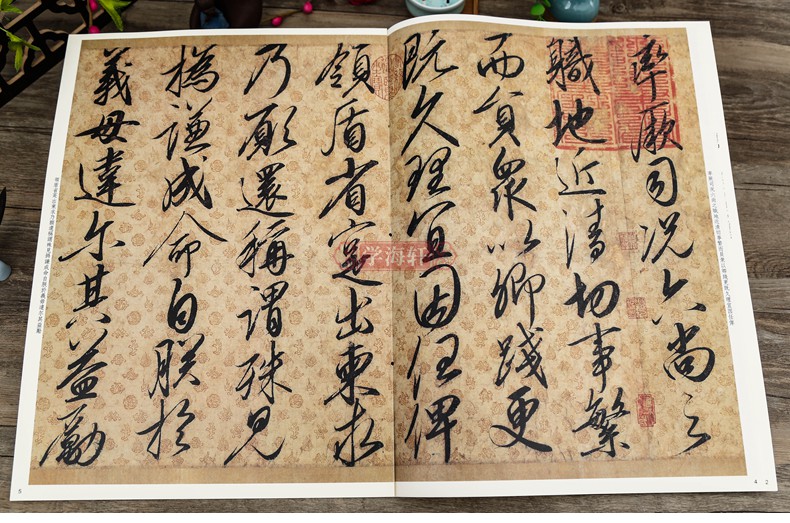 率厥司況六尚之
職地近清切事繁
而員衆以卿踐更
既久理宜因任俾
領盾省寔出柬求
乃願還稱謂殊見
撝謙成命自朕於
義毋違爾其益勵
学海轩
5
4
2